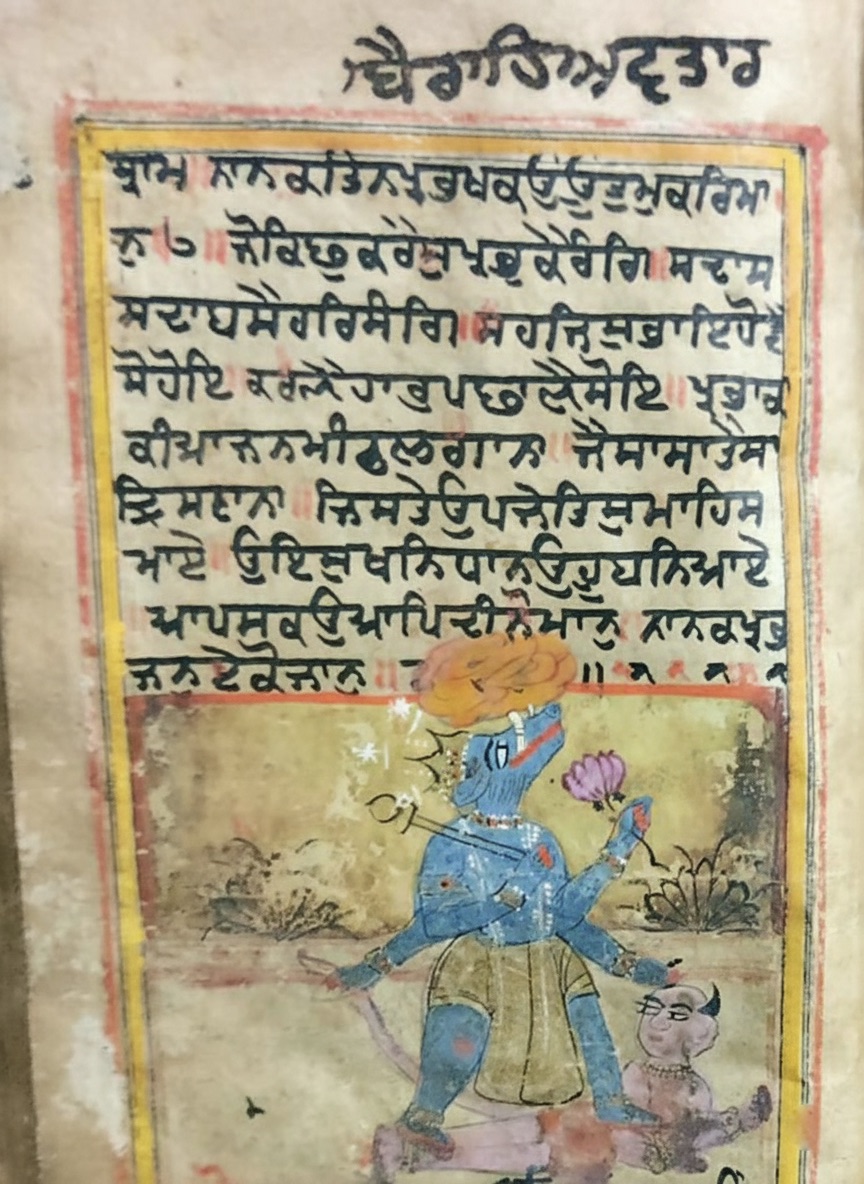 ਬੈਰਾਹਿਅਵਤਾਰ
ਸ੍ਰਾਮ ॥ ਨਾਨਕਤਿਨਪੁਰਖਕਉਊਤਮੁਕਰਿਮਾ
ਨੁ ੭ ॥ ਜੋਕਿਛੁਕਰੈਸੁਪ੍ਰਭੁਕੈਰੰਗਿ ॥ ਸਦਾਸ
ਸਦਾਬਸੈਹਰਿਸੰਗਿ ॥ ਸਹਜਿਸੁਭਾਇਹੋਵੈ
ਸੋਹੋਇ ਕਰਣੈਹਾਰੁਪਛਾਣੈਸੋਇ ॥ ਪ੍ਰਭਕਾ
ਕੀਆਜਨਮੀਠਲਗਾਨਾ ॥ ਜੈਸਾਸਾਤੈਸਾ
ਦ੍ਰਿਸਟਾਨਾ ॥ ਜਿਸਤੇਉਪਜੇਤਿਸੁਮਾਹਿਸ
ਮਾਏ ॥ ਉਇਸੁਖਨਿਧਾਨਉਨੁਹੂਬਨਿਆਏ
ਆਪਸੁਕਉਆਪਿਦੀਨੋਮਾਨੁ ਨਾਨਕਪ੍ਰਭੁ
ਜਨੁਏਕੋਜਾਨੁ ॥ ॥